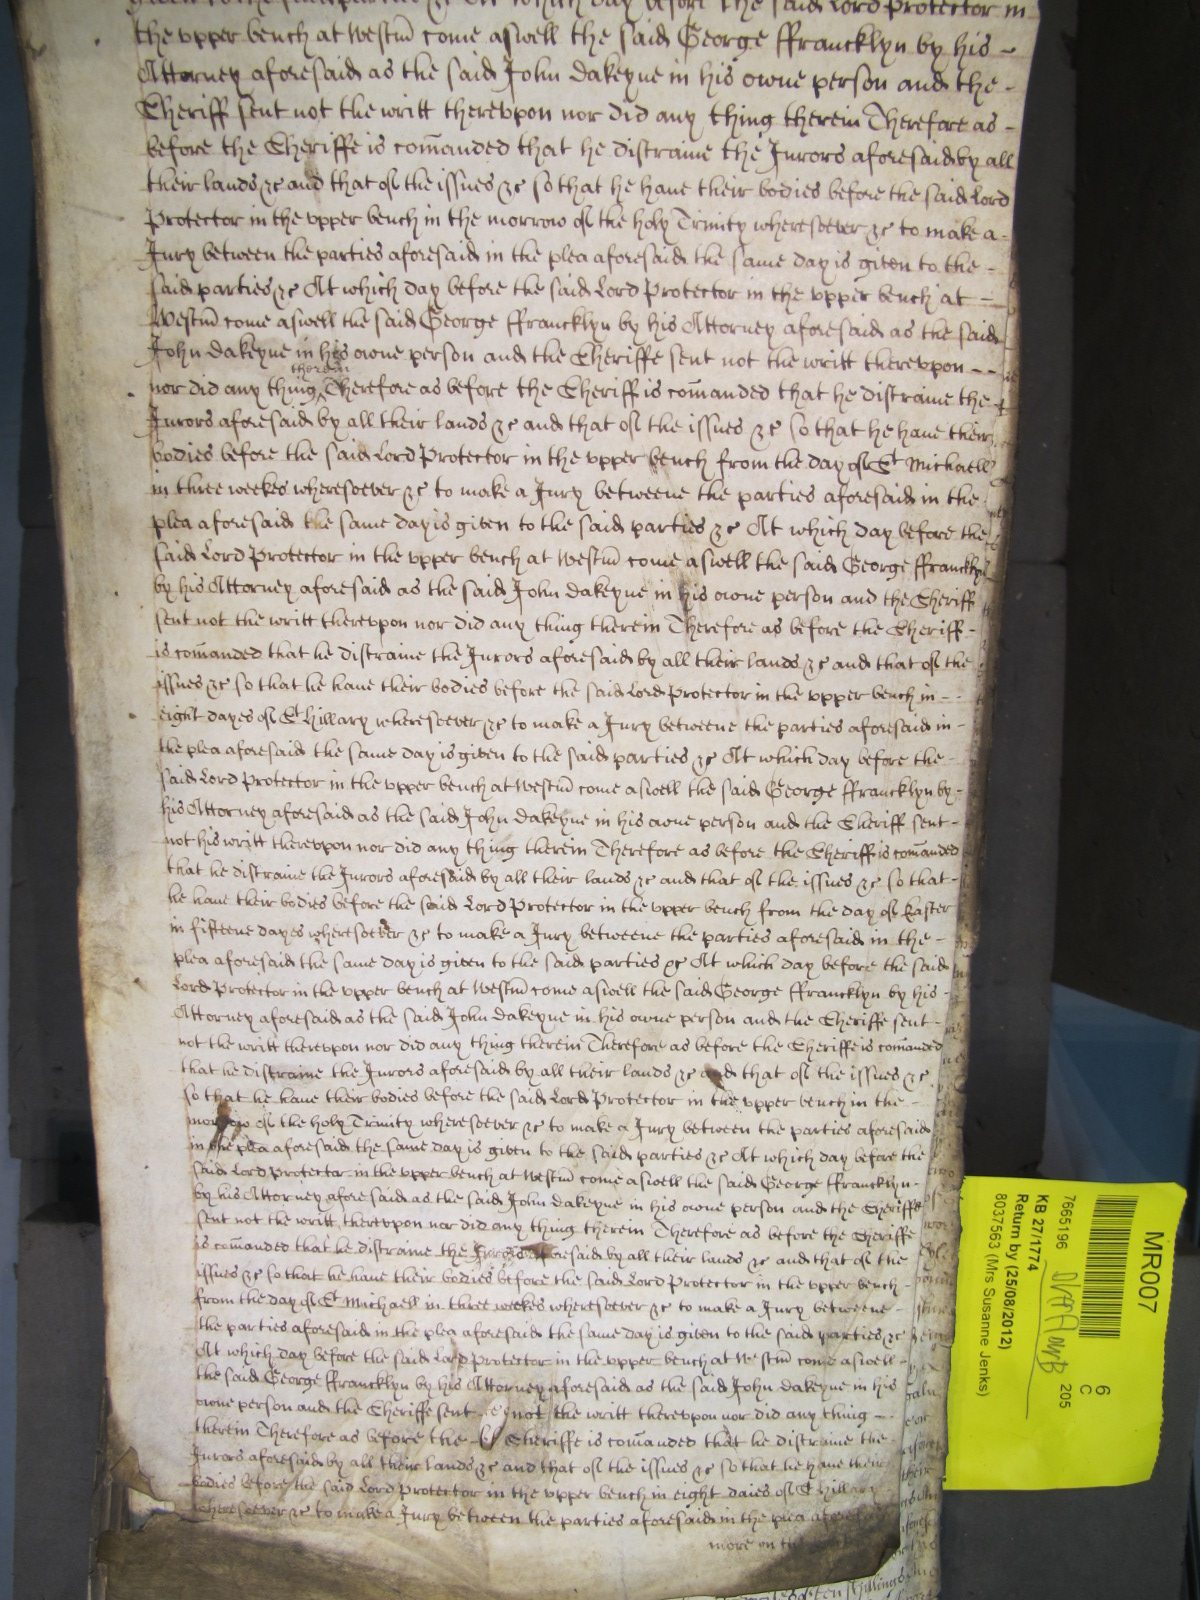 given to the said parties &c At which day before the said Lord Protector in
the vpper bench at Westm̄ come aswell the said George ffrancklyn by his -
Attorney aforesaid as the said John Dakeyne in his owne person and the -
Sheriff sent not the writt therevpon nor did any thing therein Therefore as -
before the Sheriffe is com̄anded that he distraine the Jurors aforesaid by all
their lands &c and that of the issues &c so that he haue their bodies before the said Lord
Protector in the vpper bench in the morrow of the holy Trinity wheresoever &c to make a -
Jury between the parties aforesaid in the plea aforesaid the same day is given to the -
said parties &c At which day before the said Lord Protector in the vpper bench at -
Westm̄ come aswell the said George ffrancklyn by his Attorney aforesaid as the said
John Dakeyne in his owne person and the Sheriffe sent not the writt therevpon - -
nor did any thing therein Therefore as before the Sheriff is com̄anded that he distraine the -
Jurors aforesaid by all their lands &c and that of the issues &c so that he haue their
bodies before the said Lord Protector in the vpper bench from the day of St Michaell
in three weekes wheresoever &c to make a Jury betweene the parties aforesaid in the -
plea aforesaid the same day is given to the said parties &c At which day before the
said Lord Protector in the vpper bench at Westm̄ come aswell the said George ffrancklyn
by his Attorney aforesaid as the said John Dakeyne in his owne person and the Sheriff
sent not the writt therevpon nor did any thing therein Therefore as before the Sheriff -
is com̄anded that he distraine the Jurors aforesaid by all their lands &c and that of the
issues &c so that he haue their bodies before the said Lord Protector in the vpper bench in - -
eight dayes of St Hillary wheresoever &c to make a Jury betweene the parties aforesaid in -
the plea aforesaid the same day is given to the said parties &c At which day before the -
said Lord Protector in the vpper bench at Westm̄ come aswell the said George ffrancklyn by -
his Attorney aforesaid as the said John Dakeyne in his owne person and the Sheriff sent -
not his writt therevpon nor did any thing therein Therefore as before the Sheriff is com̄anded
that he distraine the Jurors aforesaid by all their lands &c and that of the issues &c so that -
he haue their bodies before the said Lord Protector in the vpper bench from the day of Easter
in fifteene dayes wheresoever &c to make a Jury betweene the parties aforesaid in the -
plea aforesaid the same day is given to the said parties &c At which day before the said
Lord Protector in the vpper bench at Westm̄ come aswell the said George ffrancklyn by his -
Attorney aforesaid as the said John Dakeyne in his owne person and the Sheriffe sent -
not the writt therevpon nor did any thing therein Therefore as before the Sheriffe is com̄anded
that he distraine the Jurors aforesaid by all their lands &c and that of the issues &c
so that he haue their bodies before the said Lord Protector in the vpper bench in the -
morrow of the holy Trinity wheresoever &c to make a Jury between the parties aforesaid
in the plea aforesaid the same day is given to the said parties &c At which day before the
said Lord Protector in the vpper bench at Westm̄ come aswell the said George ffrancklyn -
by his Attorney aforesaid as the said John Dakeyne in his owne person and the Sheriffe
sent not the writt therevpon nor did any thing therein Therefore as before the Sheriffe
is com̄anded that he distraine the Jurors aforesaid by all their lands &c and that of the
issues &c so that he haue their bodies before the said Lord Protector in the vpper bench -
from the day of St Michaell in three weekes wheresoever &c to make a Jury betweene -
the parties aforesaid in the plea aforesaid the same day is given to the said parties &c
At which day before the said Lord Protector in the vpper bench at Westm̄ come aswell -
the said George ffrancklyn by his Attorney aforesaid as the said John Dakeyne in his
owne person and the Sheriffe sent not the writt therevpon nor did any thing -
therein Therefore as before the Sheriffe is com̄anded that he distraine the -
Jurors aforesaid by all their lands &c and that of the issues &c so that he haue their
bodies before the said Lord Protector in the vpper bench in eight daies of St Hillary
wheresoever &c to make a Jury between the parties aforesaid in the plea aforesaid
more on the
MR007
6
C
205
7665196
KB 27/1774
Return by (25/08/2012)
8037563 (Mrs Susanne Jenks)